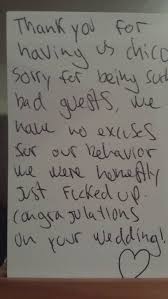 Thank you for
having us chico
sorry for being such
bad guests, we
have no excuses
for our behavior
we were honestly
just fucked up.
congratulations
on your wedding!